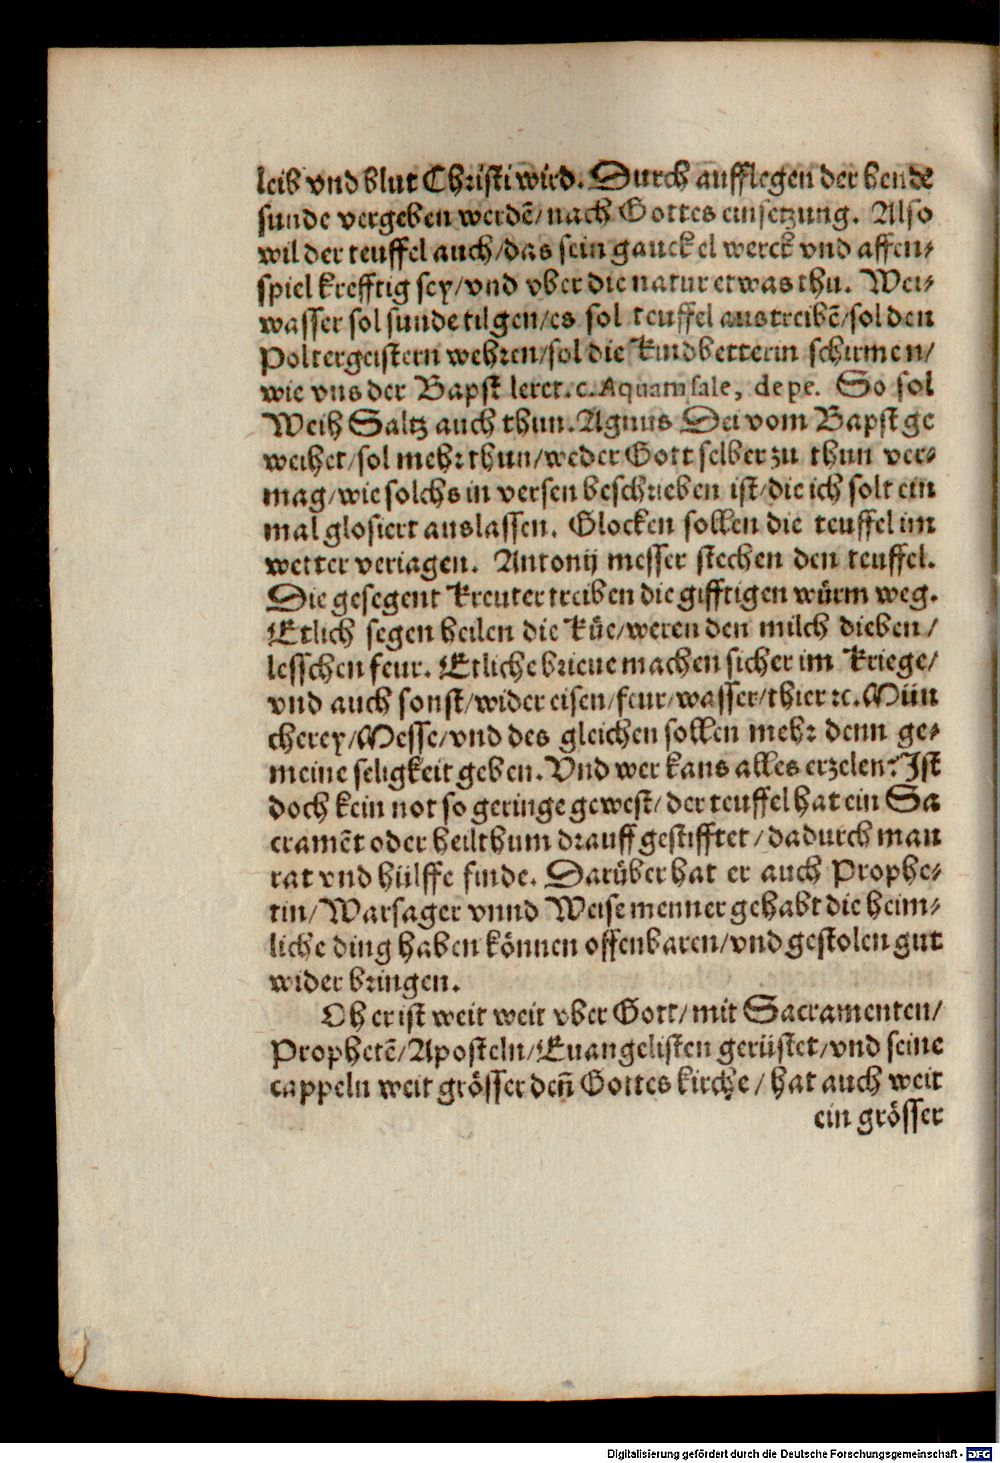 leib vnd blut Christi wird. Durch aufflegen der hende
sunde vergeben werdē/ nach Gottes einsetzung. Also
wil der teuffel auch/ das sein gauckel werck vnd affen-
spiel krefftig sey/ vnd vber die natur etwas thu. Wei-
wasser sol sunde tilgen/ es sol teuffel austreibē/ sol den
Poltergeistern wehren/ sol die Kindbetterin schirmen/
wie vns der Bapst leret. c. Aquam sale, de pe. So sol
Weih Saltz auch thun. Agnus Dei vom Bapst ge
weihet/ sol mehr thun/ weder Gott selber zu thun ver-
mag/ wie solchs in versen beschrieben ist/ die ich solt ein
mal glosiert auslassen. Glocken sollen die teuffel im
wetter veriagen. Antonij messer stechen den teuffel.
Die gesegent Kreuter treiben die gifftigen würm weg.
Etlich segen heilen die Küe/ weren den milch dieben/
lesschen feur. Etliche brieue machen sicher im Kriege/
vnd auch sonst/ wider eisen/ feur/ wasser/ thier ꝛc. Mün
cherey/ Messe/ vnd des gleichen sollen mehr denn ge-
meine seligkeit geben. Vnd wer kans alles erzelen? Ist
doch kein not so geringe gewest/ der teuffel hat ein Sa
cramēt oder heilthum drauff gestifftet/ dadurch man
rat vnd hülffe finde. Darüber hat er auch Prophe-
tin/ Warsager vnnd Weise menner gehabt die heim-
liche ding haben können offenbaren/ vnd gestolen gut
wider bringen.
Oh er ist weit weit vber Gott/ mit Sacramenten/
Prophetē/ Aposteln/ Euangelisten gerüstet/ vnd seine
cappeln weit grösser deñ Gottes kirche/ hat auch weit
ein grösser
Digitalisierung gefördert durch die Deutsche Forschungsgemeinschaft - DFG